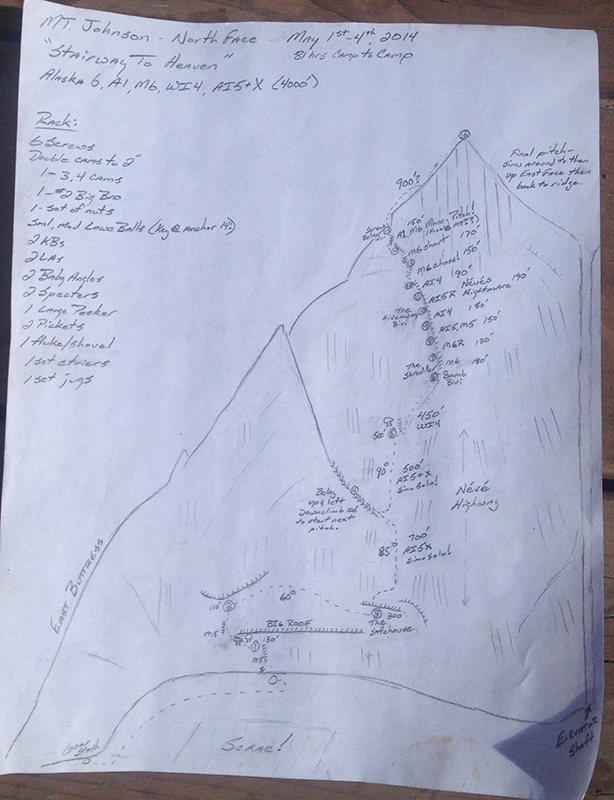 Mt. Johnson - North Face May 1st-4th, 2014
"Stairway To Heaven" 81 hrs Camp to Camp
Alaska 6, A1, M6, WI4, AI5+X (4000')
Rack:
6 Screws
Double cams to 2"
1-3,4 Cams
1-#2 Big Bro
1-set of nuts
Sml, med Lowe Balls (Key @ Anchor 14!)
2 KBs
2 LAs
2 Baby Angles
2 Specters
1 Large Pecker
2 Pickets
1 fluke/shovel
1 set etriers
1 set jugs
Final pitch-
simu around to then
up East Face then
back to ridge.
900'
150'
A1, M6 Money Pitch!
M6 short 170'
M6 choss! 150'
AI4 90'
AI5R Névés Nightmare 190'
The Hideaway Bivi
AI4 180'
AI5, M5 150'
M6R 130'
The Shredder
M6 180'
Bomb Bivi
450'
WI4
50'
90°
500'
AI5+X
Simo Solo!
Névé
Highway
Belay
up & left
Downclimb 100'
to start next
pitch.
700'
85° AI5X
Simo Solo!
East Buttress
60°
110'
M5
BIG ROOF
200'
The
Safehouse
1 130'
M5
Gear
Stash
Serac!
Elevator
Shaft